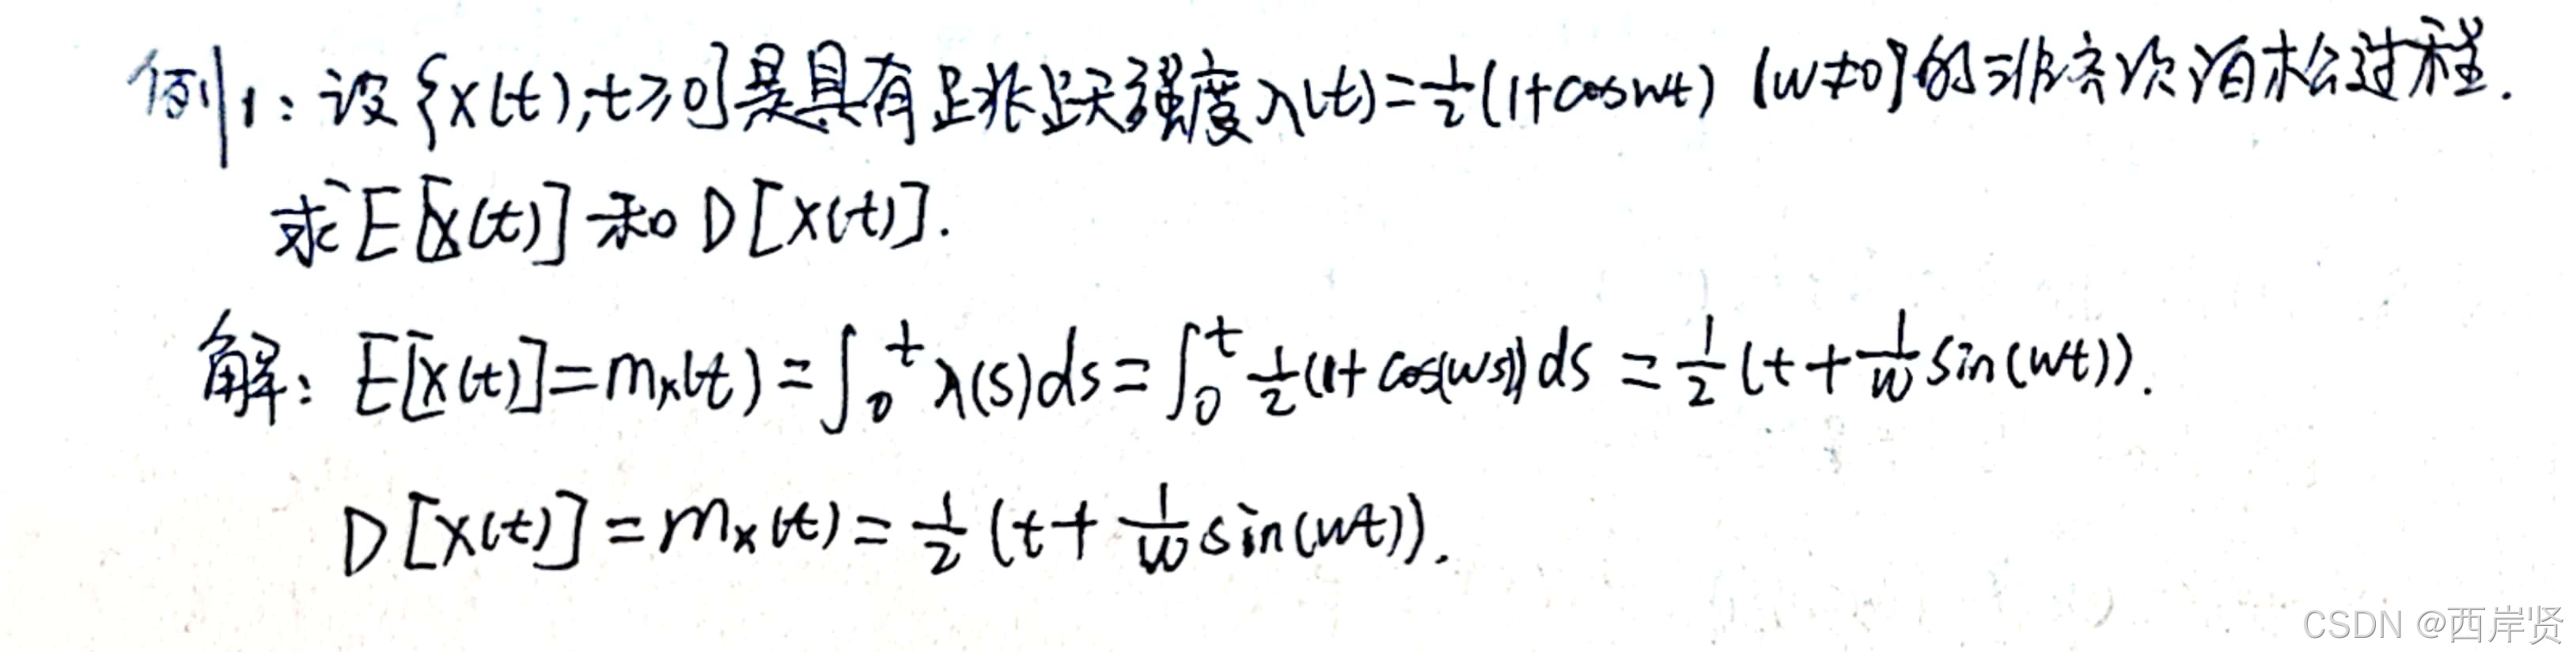 例1: 设{X(t),t≥0}是具有跳跃强度λ(t)=½(1+cosωt) (ω≠0)的非齐次泊松过程.
求E[X(t)]和D[X(t)].
解: E[X(t)]=m_X(t)=∫₀ᵗλ(s)ds=∫₀ᵗ½(1+cos(ωs))ds=½(t+1/ω sin(ωt)).
D[X(t)]=m_X(t)=½(t+1/ω sin(ωt)).
CSDN @西岸贤